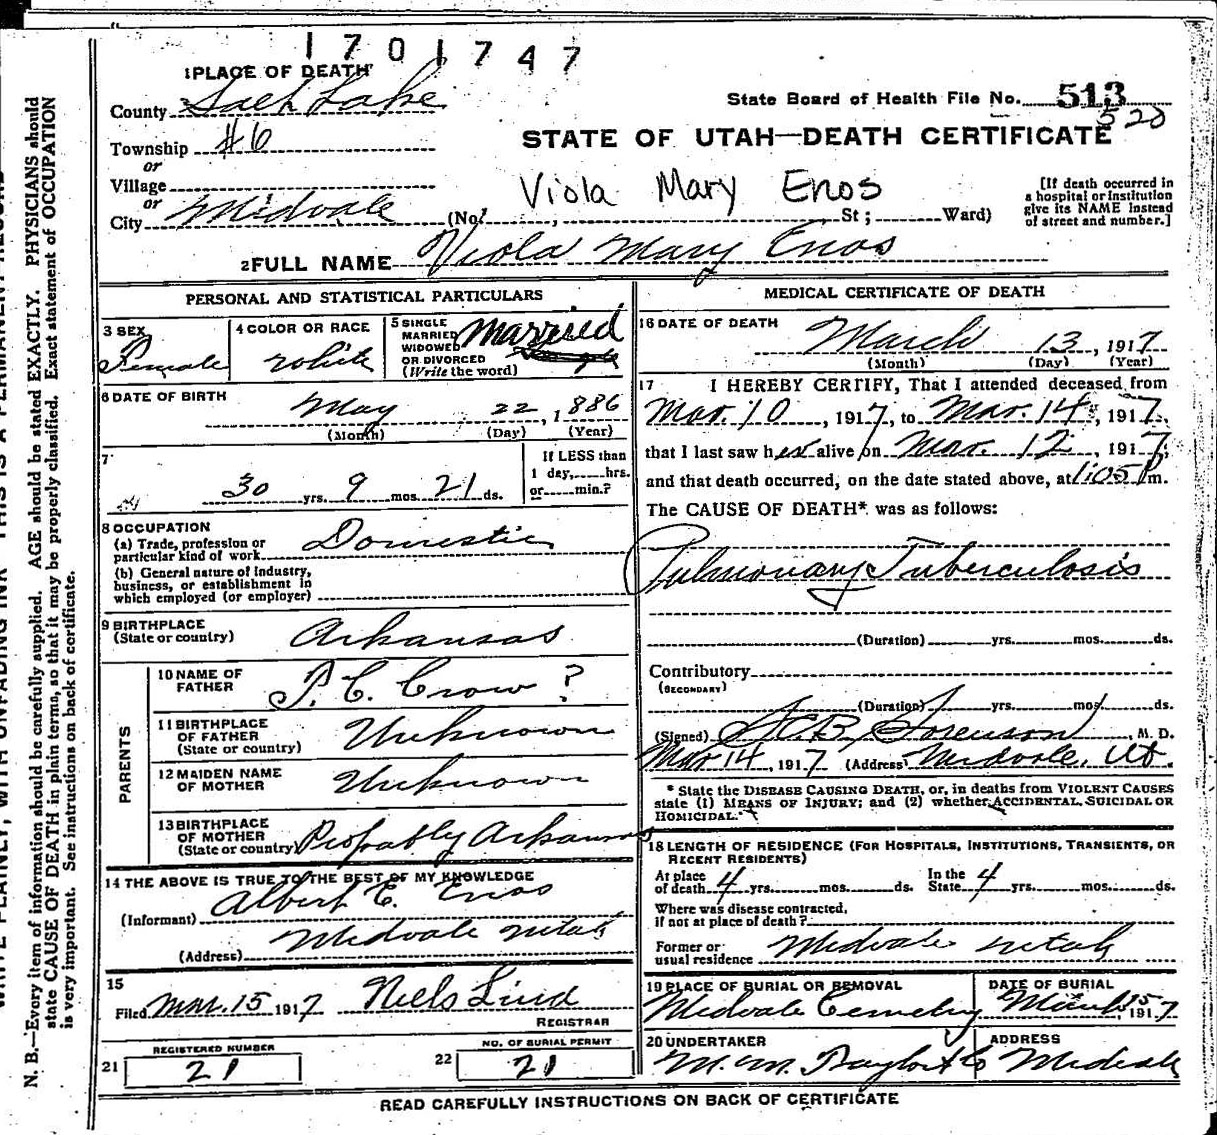 1701747
1 PLACE OF DEATH
County Salt Lake
State Board of Health File No. 513
520
Township #6
STATE OF UTAH—DEATH CERTIFICATE
or
Village
or
Viola Mary Enos
City Midvale (No. St; Ward)
[If death occurred in
a hospital or institution
give its NAME instead
of street and number.]
2 FULL NAME Viola Mary Enos
PERSONAL AND STATISTICAL PARTICULARS
3 SEX
Female
4 COLOR OR RACE
white
5 SINGLE
MARRIED
WIDOWED
OR DIVORCED
(Write the word)
Married
6 DATE OF BIRTH
May 22, 1886
(Month) (Day) (Year)
7
30 yrs. 9 mos. 21 ds.
If LESS than
1 day, hrs.
or min.?
8 OCCUPATION
(a) Trade, profession or
particular kind of work Domestic
(b) General nature of industry,
business, or establishment in
which employed (or employer)
9 BIRTHPLACE
(State or country) Arkansas
PARENTS
10 NAME OF
FATHER
P. C. Crow ?
11 BIRTHPLACE
OF FATHER
(State or country)
Unknown
12 MAIDEN NAME
OF MOTHER
Unknown
13 BIRTHPLACE
OF MOTHER
(State or country) Probably Arkansas
14 THE ABOVE IS TRUE TO THE BEST OF MY KNOWLEDGE
(Informant) Albert E. Enos
(Address) Midvale Utah
15
Filed Mar. 15 1917 Niels Lind
REGISTRAR
21 REGISTERED NUMBER
21
22 NO. OF BURIAL PERMIT
21
MEDICAL CERTIFICATE OF DEATH
16 DATE OF DEATH
March 13, 1917
(Month) (Day) (Year)
17 I HEREBY CERTIFY, That I attended deceased from
Mar. 10, 1917, to Mar. 14, 1917,
that I last saw her alive on Mar. 12, 1917;
and that death occurred, on the date stated above, at 1:05 P m.
The CAUSE OF DEATH* was as follows:
Pulmonary Tuberculosis
(Duration) yrs. mos. ds.
Contributory
(SECONDARY)
(Duration) yrs. mos. ds.
(Signed) Sorenson, M. D.
Mar 14, 1917 (Address) Midvale, Ut.
* State the DISEASE CAUSING DEATH, or, in deaths from VIOLENT CAUSES
state (1) MEANS OF INJURY; and (2) whether ACCIDENTAL, SUICIDAL OR
HOMICIDAL.
18 LENGTH OF RESIDENCE (FOR HOSPITALS, INSTITUTIONS, TRANSIENTS, OR
RECENT RESIDENTS)
At place
of death 4 yrs. mos. ds.
In the
State 4 yrs. mos. ds.
Where was disease contracted,
if not at place of death?
Former or
usual residence Midvale Utah
19 PLACE OF BURIAL OR REMOVAL
Midvale Cemetery
DATE OF BURIAL
March 15 1917
20 UNDERTAKER
M. M. Taylor & Co
ADDRESS
Midvale
READ CAREFULLY INSTRUCTIONS ON BACK OF CERTIFICATE
N. B.—Every item of information should be carefully supplied. AGE should be stated EXACTLY. PHYSICIANS should
state CAUSE OF DEATH in plain terms, so that it may be properly classified. Exact statement of OCCUPATION
is very important. See instructions on back of certificate.